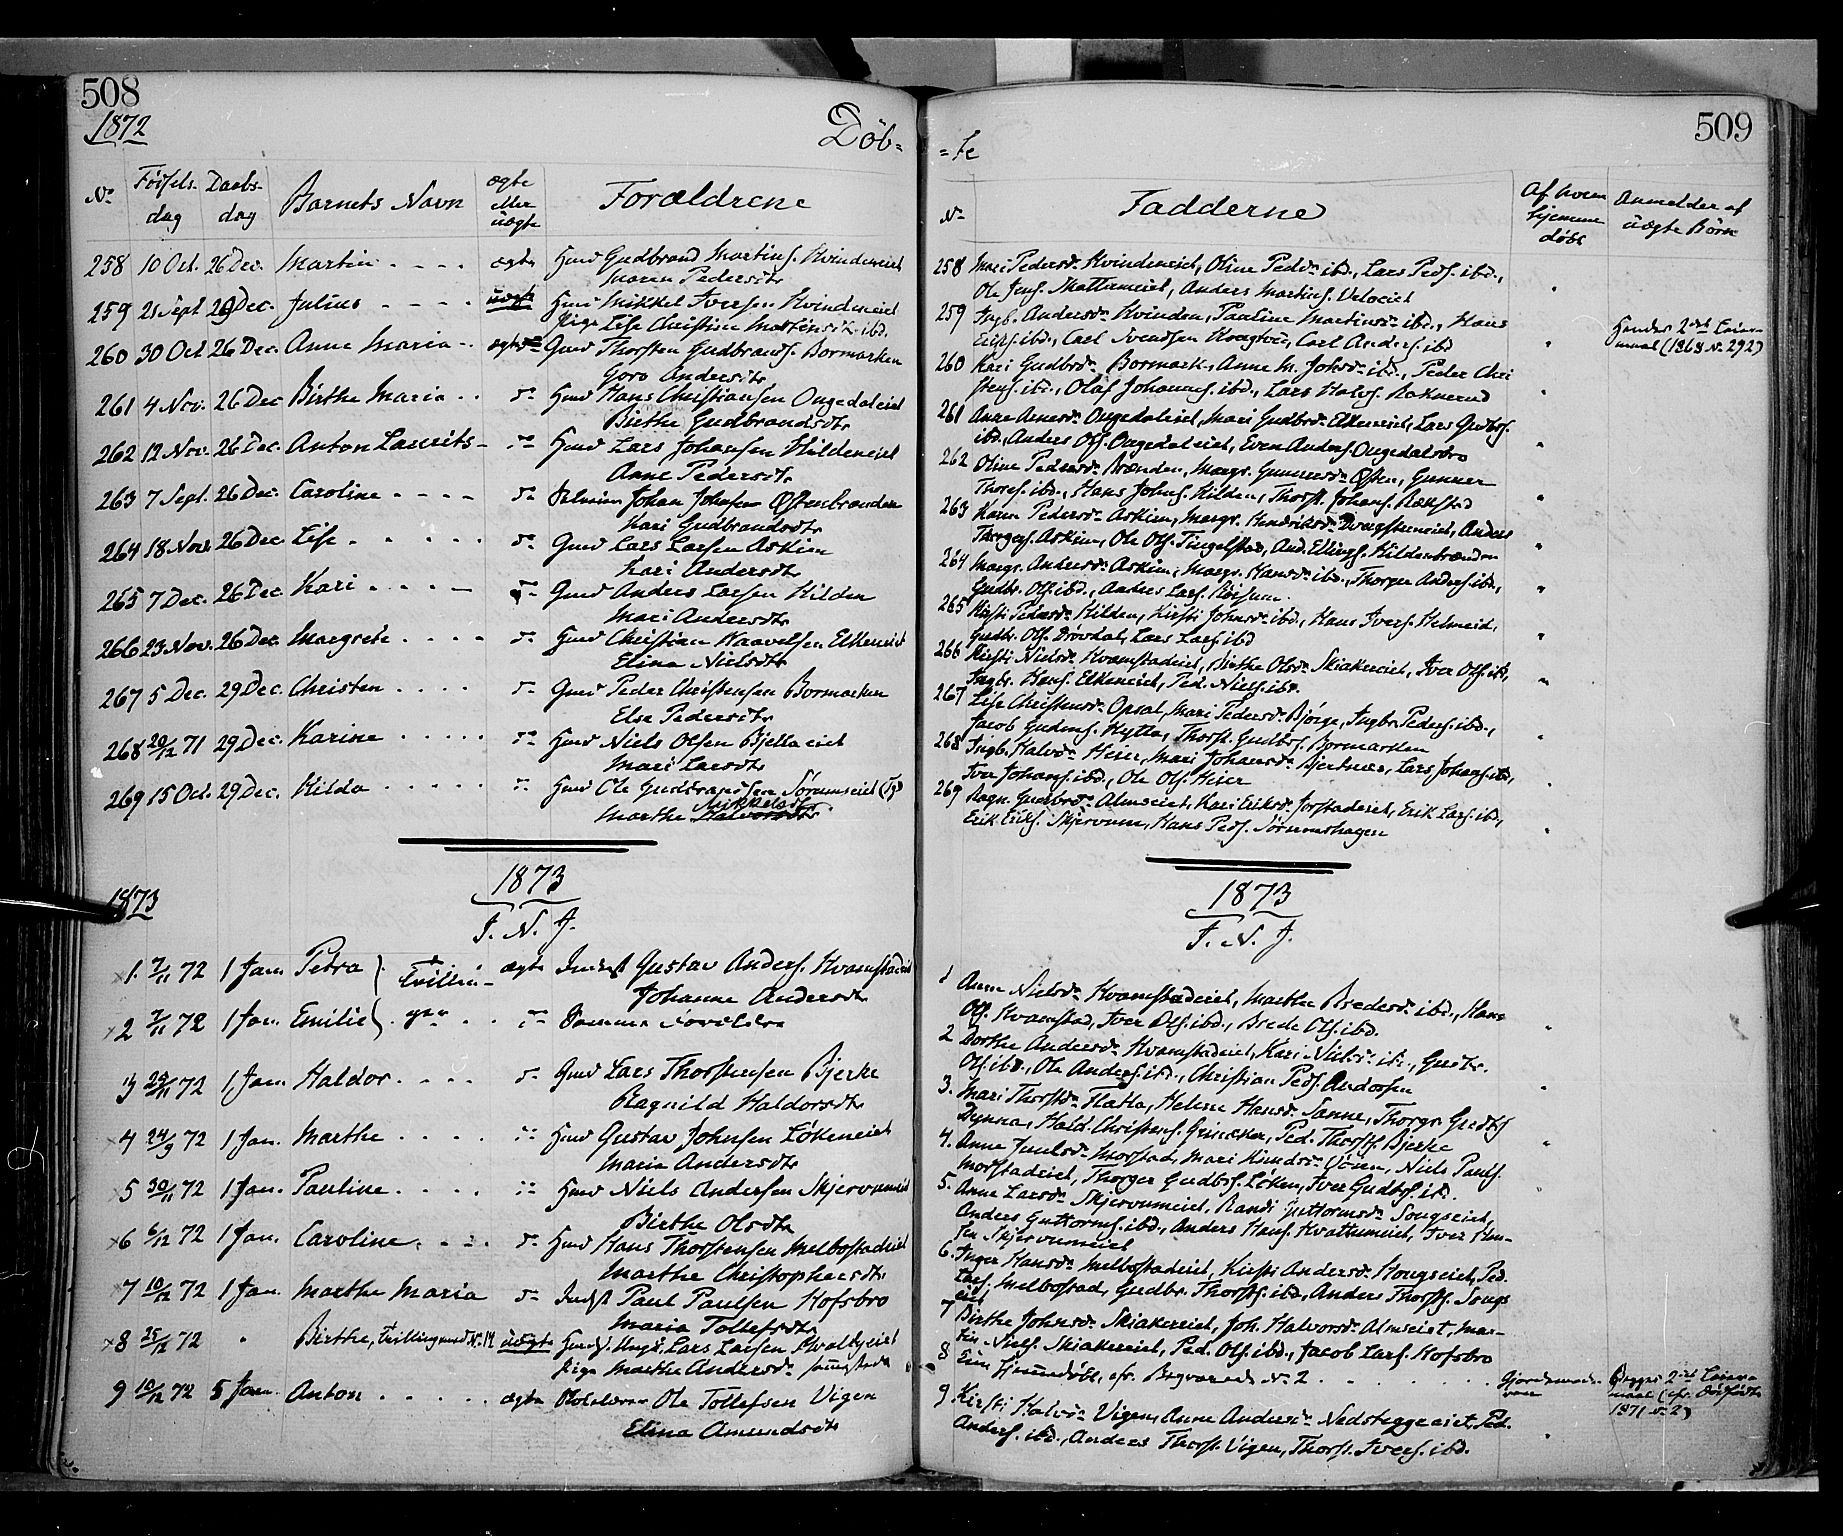 508
1872
Döb-
No Födsels- dag Daabs- dag Barnets Navn ægte eller uægte Forældrene
258 10 Oct. 26 Dec. Martin ægte Huusm Gudbrand Martins. Hvindeneiet
Maren Pedersdtr
259 21 Sept 29 Dec. Julius uægte Mikkel Iversen Hvindeneiet
Pige Lise Christine Martinsdtr ibd.
260 30 Oct 26 Dec. Anne Maria ægte Gmd Thorsten Gudbrands. Bormarken
Goro Andersdtr
261 4 Nov. 26 Dec Birthe Maria do Hmd Hans Christiansen Ongedaleiet
Birthe Gudbrandsdtr
262 12 Nov. 26 Dec. Anton Laurits do Hmd Lars Johansen Hildeneiet
Anne Pedersdtr
263 7 Sept. 26 Dec. Caroline do Johan Johnsen Østenbrænden
Kari Gudbrandsdtr
264 18 Nov. 26 Dec Lise do Gmd Lars Larsen Askim
Kari Andersdtr
265 7 Dec. 26 Dec Kari do Gmd Anders Larsen Hilden
Mari Andersdtr
266 23 Nov. 26 Dec. Margrete do Hmd Christian Haavelsen Elkeneiet
Elina Nielsdtr
267 5 Dec. 29 Dec. Christen do Gmd Peder Christensen Bormarken
Else Pedersdtr
268 20/12 71 29 Dec. Karine do Hmd Niels Olsen Bjellaeiet
Mari Larsdtr
269 15 Oct. 29 Dec. Hilda do Hmd Ole Gudbrandsen Sörumseiet
Mikkelsdtr
Marthe Halvorsdtr
1873
1873
I. N. J.
1. 7/11 72 1 Jan. Petra Tvillin- ægte Inderst Gustav Anders. Hvamstadeiet
Johanne Andersdtr
2 7/11 72 1 Jan. Emilie ger do Samme Forældre
3 29/11 72 1 Jan. Haldor do Gmd Lars Thorstensen Bjerke
Ragnild Haldorsdtr
4 24/9 72 1 Jan. Marthe do Hmd Gustav Johnsen Lökeneiet
Maria Andersdtr
5 30/11 72 1 Jan. Pauline do Hmd Niels Andersen Skjervumeiet
Birthe Olsdtr
6 6/12 72 1 Jan. Caroline do Hmd Hans Thorstensen Melbostadeiet
Marthe Christophersdtr
7 10/12 72 1 Jan. Marthe Maria do Inderst Paul Paulsen Hofsbro
Maria Tollefsdtr
8 25/12 72 " Birthe, Tvilling med No 14 uægte Ungk. Lars Larsen
Pige Marthe Andersdr
9 10/12 72 5 Jan. Anton ægte Ole Tollefsen Vigen
Elina Amundsdtr
509
-te
No Fadderne Af hvem hjemme- döbt Anmelder af uægte Börn
258 Mari Pedersdr Hvindeneiet, Oline Peddr ibd., Lars Peds. ibd.,
Ole Jens. Anders Martins. Veloeiet
259 Ingb. Andersdr Hvinden, Pauline Martinsdr ibd., Hans
Eriks. ibd., Carl Svendsen Carl Anders. ibd
2det Leier-
maal (1868 No 292)
260 Kari Gudbrdr Bormark, Anne M. Johsdr ibd., Peder Chri
stens. ibd., Olaf Johannes. ibd., Lars Halvs. Raknerud
261 Anne Arnesdr Ongedaleiet, Mari Gudbrdr Elkeneiet, Lars Gudbs.
ibd., Anders Ols. Ongedaleiet, Even Anders. Ongedalsbro
262 Oline Pedersdr Brænden, Margr. Gunnersdr Østen, Gunner
Thores. ibd., Hans Johns. Hilden, Thorst. Johans.
263 Karen Pedersdr Askim, Margr. Henriksdr Anders
Thorgers. Askim, Ole Ols. Tingelstad, And. Ellings. Hildenbrænden
264 Margr. Andersdr Askim, Margr. Hansdr ibd., Thorger Anders. ibd.,
Gudbr. Ols. ibd., Anders Lars. Röisum
265 Kirsti Pedersdr Hilden, Kirsti Johnsdr ibd., Hans Ivers.
Gudbr. Ols. Dövdal, Lars Lars. ibd
266 Kirsti Nielsdr Hvamstadeiet, Birthe Olsdr Skiakereiet, Iver Ols. ibd.,
Ingbr. Hans. Elkeneiet, Ped. Niels. ibd.
267 Lise Christensdr Opsal, Mari Pedersdr Bjørge, Ingbr. Peders. ibd.,
Jacob Gudms. Hytta, Thorst. Gudbs. Bormarken
268 Ingb. Halvdr Heier, Mari Johansdr Bjertnes, Lars Johans. ibd.,
Iver Johans. ibd., Ole Ols. Heier
269 Ragn. Gudbrdr Almseiet, Kari Eriksdr Jorstadeiet, Erik Lars. ibd.,
Erik Eriks. Skjervum, Hans Peds. Sörumshagen
1873
I. N. J.
1 Anne Nielsdr Hvamstadeiet, Marthe Bredesdr ibd., Hans
Ols. Hvamstad, Iver Ols. ibd., Brede Ols. ibd.
2 Dorthe Andersdr Hvamstadeiet, Kari Nielsdr ibd., Gudbr.
Ols. ibd., Ole Anders. ibd., Christian Peds.
3. Mari Thorstdr Flatla, Helene Hansdr Sanne, Thorgr. Gudbs
Dynna, Hald. Christens. Grinaker, Ped. Thorsts. Bjerke
4. Anne Juulsdr Morstad, Mari Knudsdr Niels Pauls.
Morstadeiet, Thorger Gudbs. Löken, Iver Gudbs. ibd.
5. Anne Larsdr Skjervumeiet, Randi Guttormsdr
Anders Guttorms. ibd., Anders Hans. Iver
Skjervumeiet
6. Inger Hansdr Melbostadeiet, Kirsti Andersdr Ped.
Lars. Melbostad, Gudbr. Thorsts. ibd., Anders Thorsts.
eiet
7 Birthe Johnsdr Skiakereiet, Joh. Halvorsdr Almseiet, Mar-
tin Niels. Skiakereiet, Ped. Ols. ibd., Jacob Lars. Hofsbro
8 Ein Hjemmedöbt, cfr. Begravede No 2
Gjordemode-
ren
Begges 2det Leier-
maal (cfr.
1871 No 2)
9 Kirsti Halvdr Vigen, Anne Andersdr Ped.
Anders. ibd., Anders Thorst. Vigen, Thorst. Ivers. ibd.